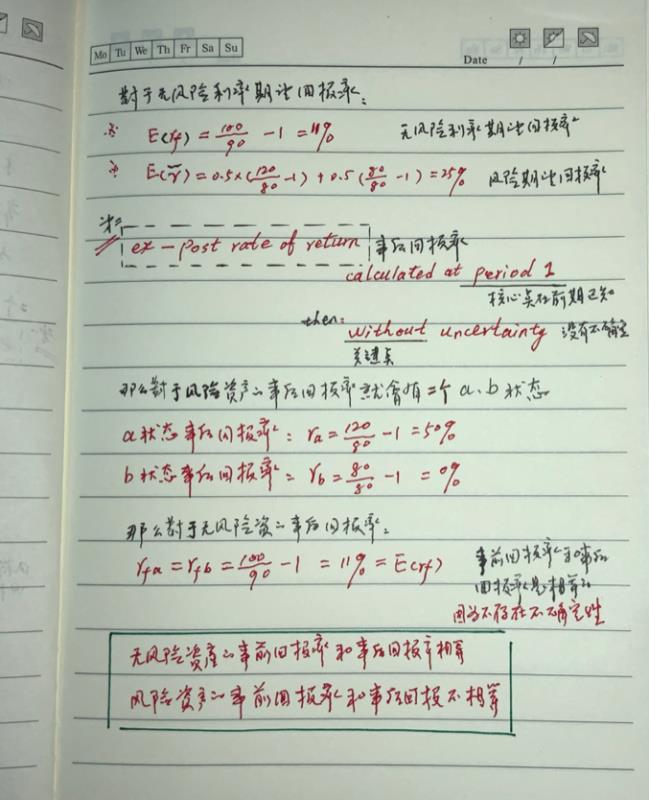 Mo Tu We Th Fr Sa Su
Date / /
对于无风险利率期望回报率：
E(rf) = 100/90 - 1 = 11% 无风险利率期望回报率
E(r̃) = 0.5×(120/80 - 1) + 0.5(80/80 - 1) = 25% 风险期望回报率
ex-post rate of return 事后回报率
calculated at period 1
核心点在前期已知
then: without uncertainty 没有不确定
关键点
那么对于风险资产的事后回报率就会有二个a、b状态
a状态事后回报率：ra = 120/80 - 1 = 50%
b状态事后回报率：rb = 80/80 - 1 = 0%
那么对于无风险资产的事后回报率：
rfa = rfb = 100/90 - 1 = 11% = E(rf) 事前回报率和事后
回报率是相等的
因为不存在不确定性
无风险资产的事前回报率和事后回报率相等
风险资产的事前回报率和事后回报不相等